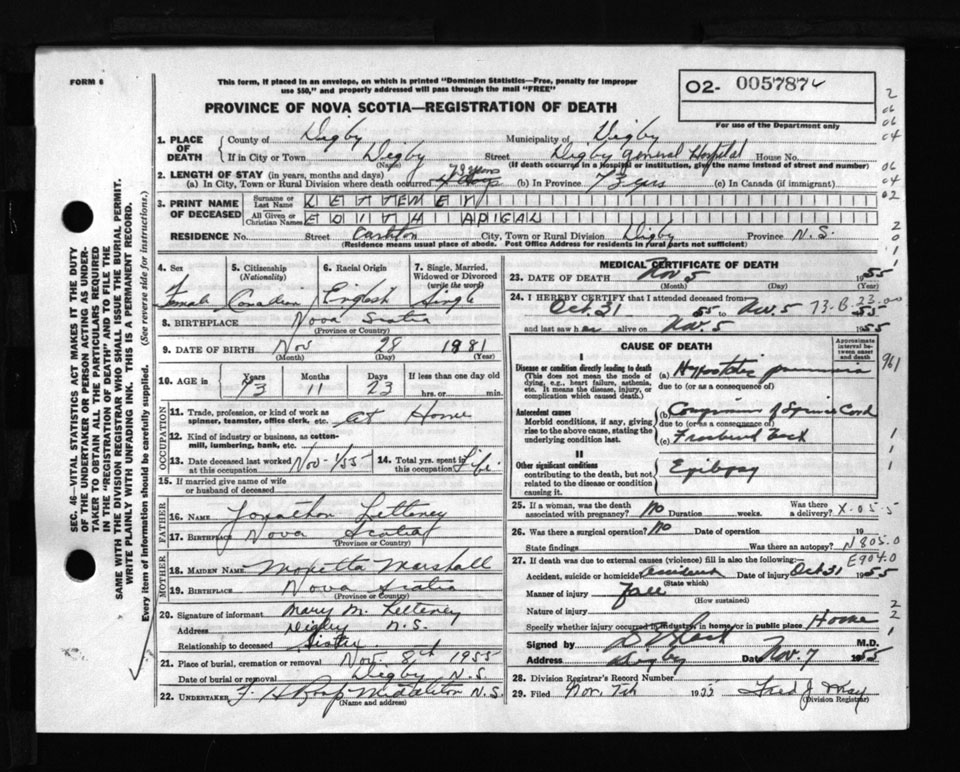 FORM 6
This form, if placed in an envelope, on which is printed "Dominion Statistics—Free, penalty for improper
use $50," and properly addressed will pass through the mail "FREE"
PROVINCE OF NOVA SCOTIA—REGISTRATION OF DEATH
02- 0057874
For use of the Department only
1. PLACE OF DEATH
County of Digby Municipality of Digby
If in City or Town Digby Street Digby General Hospital House No.
(Name) (If death occurred in a Hospital or institution, give the name instead of street and number)
2. LENGTH OF STAY (in years, months and days)
(a) In City, Town or Rural Division where death occurred 73 years (b) In Province 73 yrs (c) In Canada (if immigrant)
3. PRINT NAME OF DECEASED
Surname or Last Name LETTENEY
All Given or Christian Names EDITH ABIGAL
RESIDENCE No. Street City, Town or Rural Division Digby Province N.S.
(Residence means usual place of abode. Post Office Address for residents in rural parts not sufficient)
4. Sex Female
5. Citizenship (Nationality) Canadian
6. Racial Origin English
7. Single, Married, Widowed or Divorced (write the word) Single
8. BIRTHPLACE Nova Scotia
(Province or Country)
9. DATE OF BIRTH Nov 28 1881
(Month) (Day) (Year)
10. AGE in Years 73 Months 11 Days 23 If less than one day old
hrs. or min.
OCCUPATION
11. Trade, profession, or kind of work as spinner, teamster, office clerk, etc. at Home
12. Kind of industry or business, as cotton-mill, lumbering, bank, etc.
13. Date deceased last worked at this occupation Nov-1/55
14. Total yrs. spent in this occupation Life
15. If married give name of wife or husband of deceased
FATHER
16. NAME Jonathon Letteney
17. BIRTHPLACE Nova Scotia
(Province or Country)
MOTHER
18. MAIDEN NAME Moretta Marshall
19. BIRTHPLACE Nova Scotia
(Province or Country)
20. Signature of informant Mary M. Letteney
Address Digby N.S.
Relationship to deceased Sister
21. Place of burial, cremation or removal Nov. 8th 1955
Date of burial or removal Digby N.S.
22. UNDERTAKER Middleton N.S.
(Name and address)
MEDICAL CERTIFICATE OF DEATH
23. DATE OF DEATH Nov 5 1955
(Month) (Day) (Year)
24. I HEREBY CERTIFY that I attended deceased from
Oct. 31 55 to Nov. 5 1955
and last saw her alive on Nov. 5 1955
CAUSE OF DEATH
Approximate interval between onset and death
I
Disease or condition directly leading to death
(This does not mean the mode of dying, e.g., heart failure, asthenia, etc. It means the disease, injury, or complication which caused death.)
(a) Hypostatic pneumonia
due to (or as a consequence of)
Antecedent causes
Morbid conditions, if any, giving rise to the above cause, stating the underlying condition last.
(b) Compression of Spinal Cord
due to (or as a consequence of)
(c) Fractured
II
Other significant conditions
contributing to the death, but not related to the disease or condition causing it.
Epilepsy
25. If a woman, was the death associated with pregnancy? no Duration weeks. Was there a delivery? X-05-5
26. Was there a surgical operation? No Date of operation 19
State findings Was there an autopsy? N805.0
E904.0
27. If death was due to external causes (violence) fill in also the following:—
Accident, suicide or homicide? accident Date of injury Oct 31 1955
(State which)
Manner of injury Fall
(How sustained)
Nature of injury
Specify whether injury occurred in industry, in home or in public place Home
Signed by M.D.
Address Digby Date Nov. 7 1955
28. Division Registrar's Record Number
29. Filed Nov. 7th 1955 Fred J. May
(Division Registrar)
SEC. 46—VITAL STATISTICS ACT MAKES IT THE DUTY
OF THE UNDERTAKER OR PERSON ACTING AS UNDER-
TAKER TO OBTAIN ALL THE PARTICULARS REQUIRED
IN THE "REGISTRATION OF DEATH" AND TO FILE THE
SAME WITH THE DIVISION REGISTRAR WHO SHALL ISSUE THE BURIAL PERMIT.
WRITE PLAINLY WITH UNFADING INK. THIS IS A PERMANENT RECORD.
Every item of information should be carefully supplied. (See reverse side for instructions.)